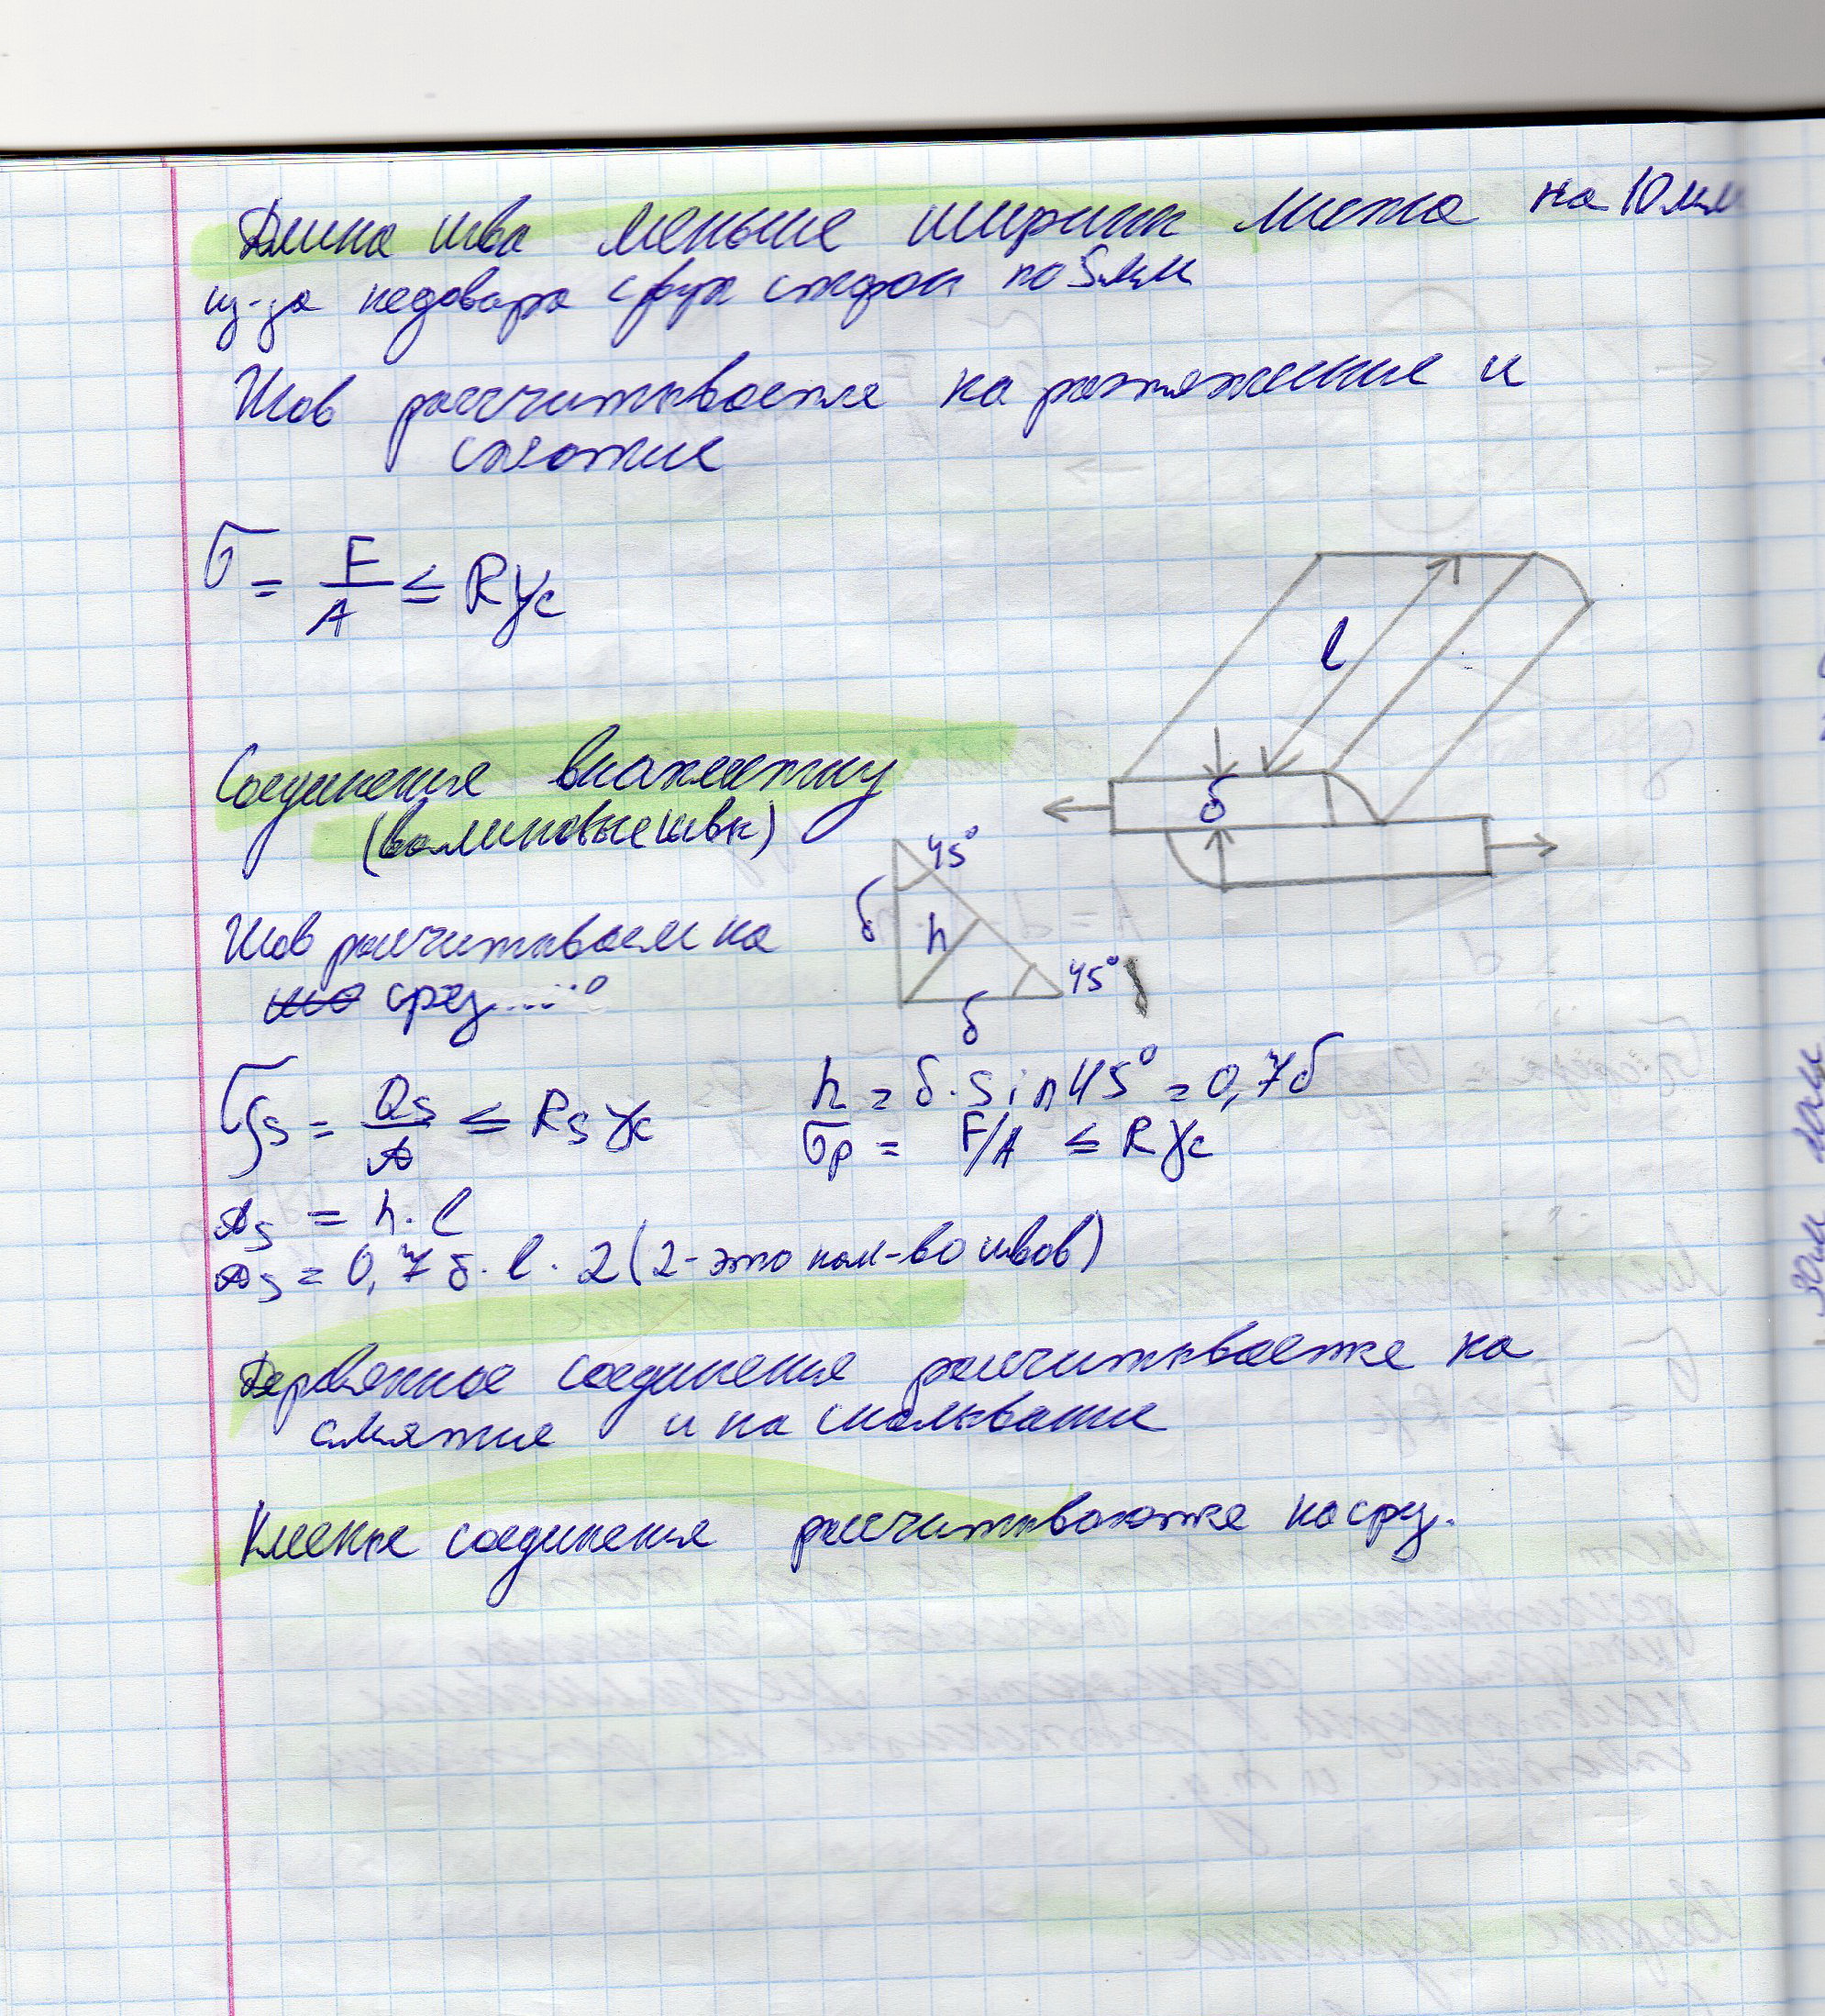 Длина шва меньше ширины листа на 10 мм
из-за недовара с двух сторон по 5 мм
Шов рассчитывается на растяжение и
сжатие
σ = F/A ≤ Rγc
l
δ
Соединения внахлестку
(валиковые швы)
45°
δ
h
45°
δ
Шов рассчитываем на
срез
τs = Qs/A ≤ Rs γc
h = δ·sin45° = 0,7δ
σp = F/A ≤ Rγc
As = h·l
As = 0,7δ·l·2 (2-это кол-во швов)
Деревянное соединения рассчитывается на
смятие и на скалывание
Клееные соединения рассчитываются на срез.